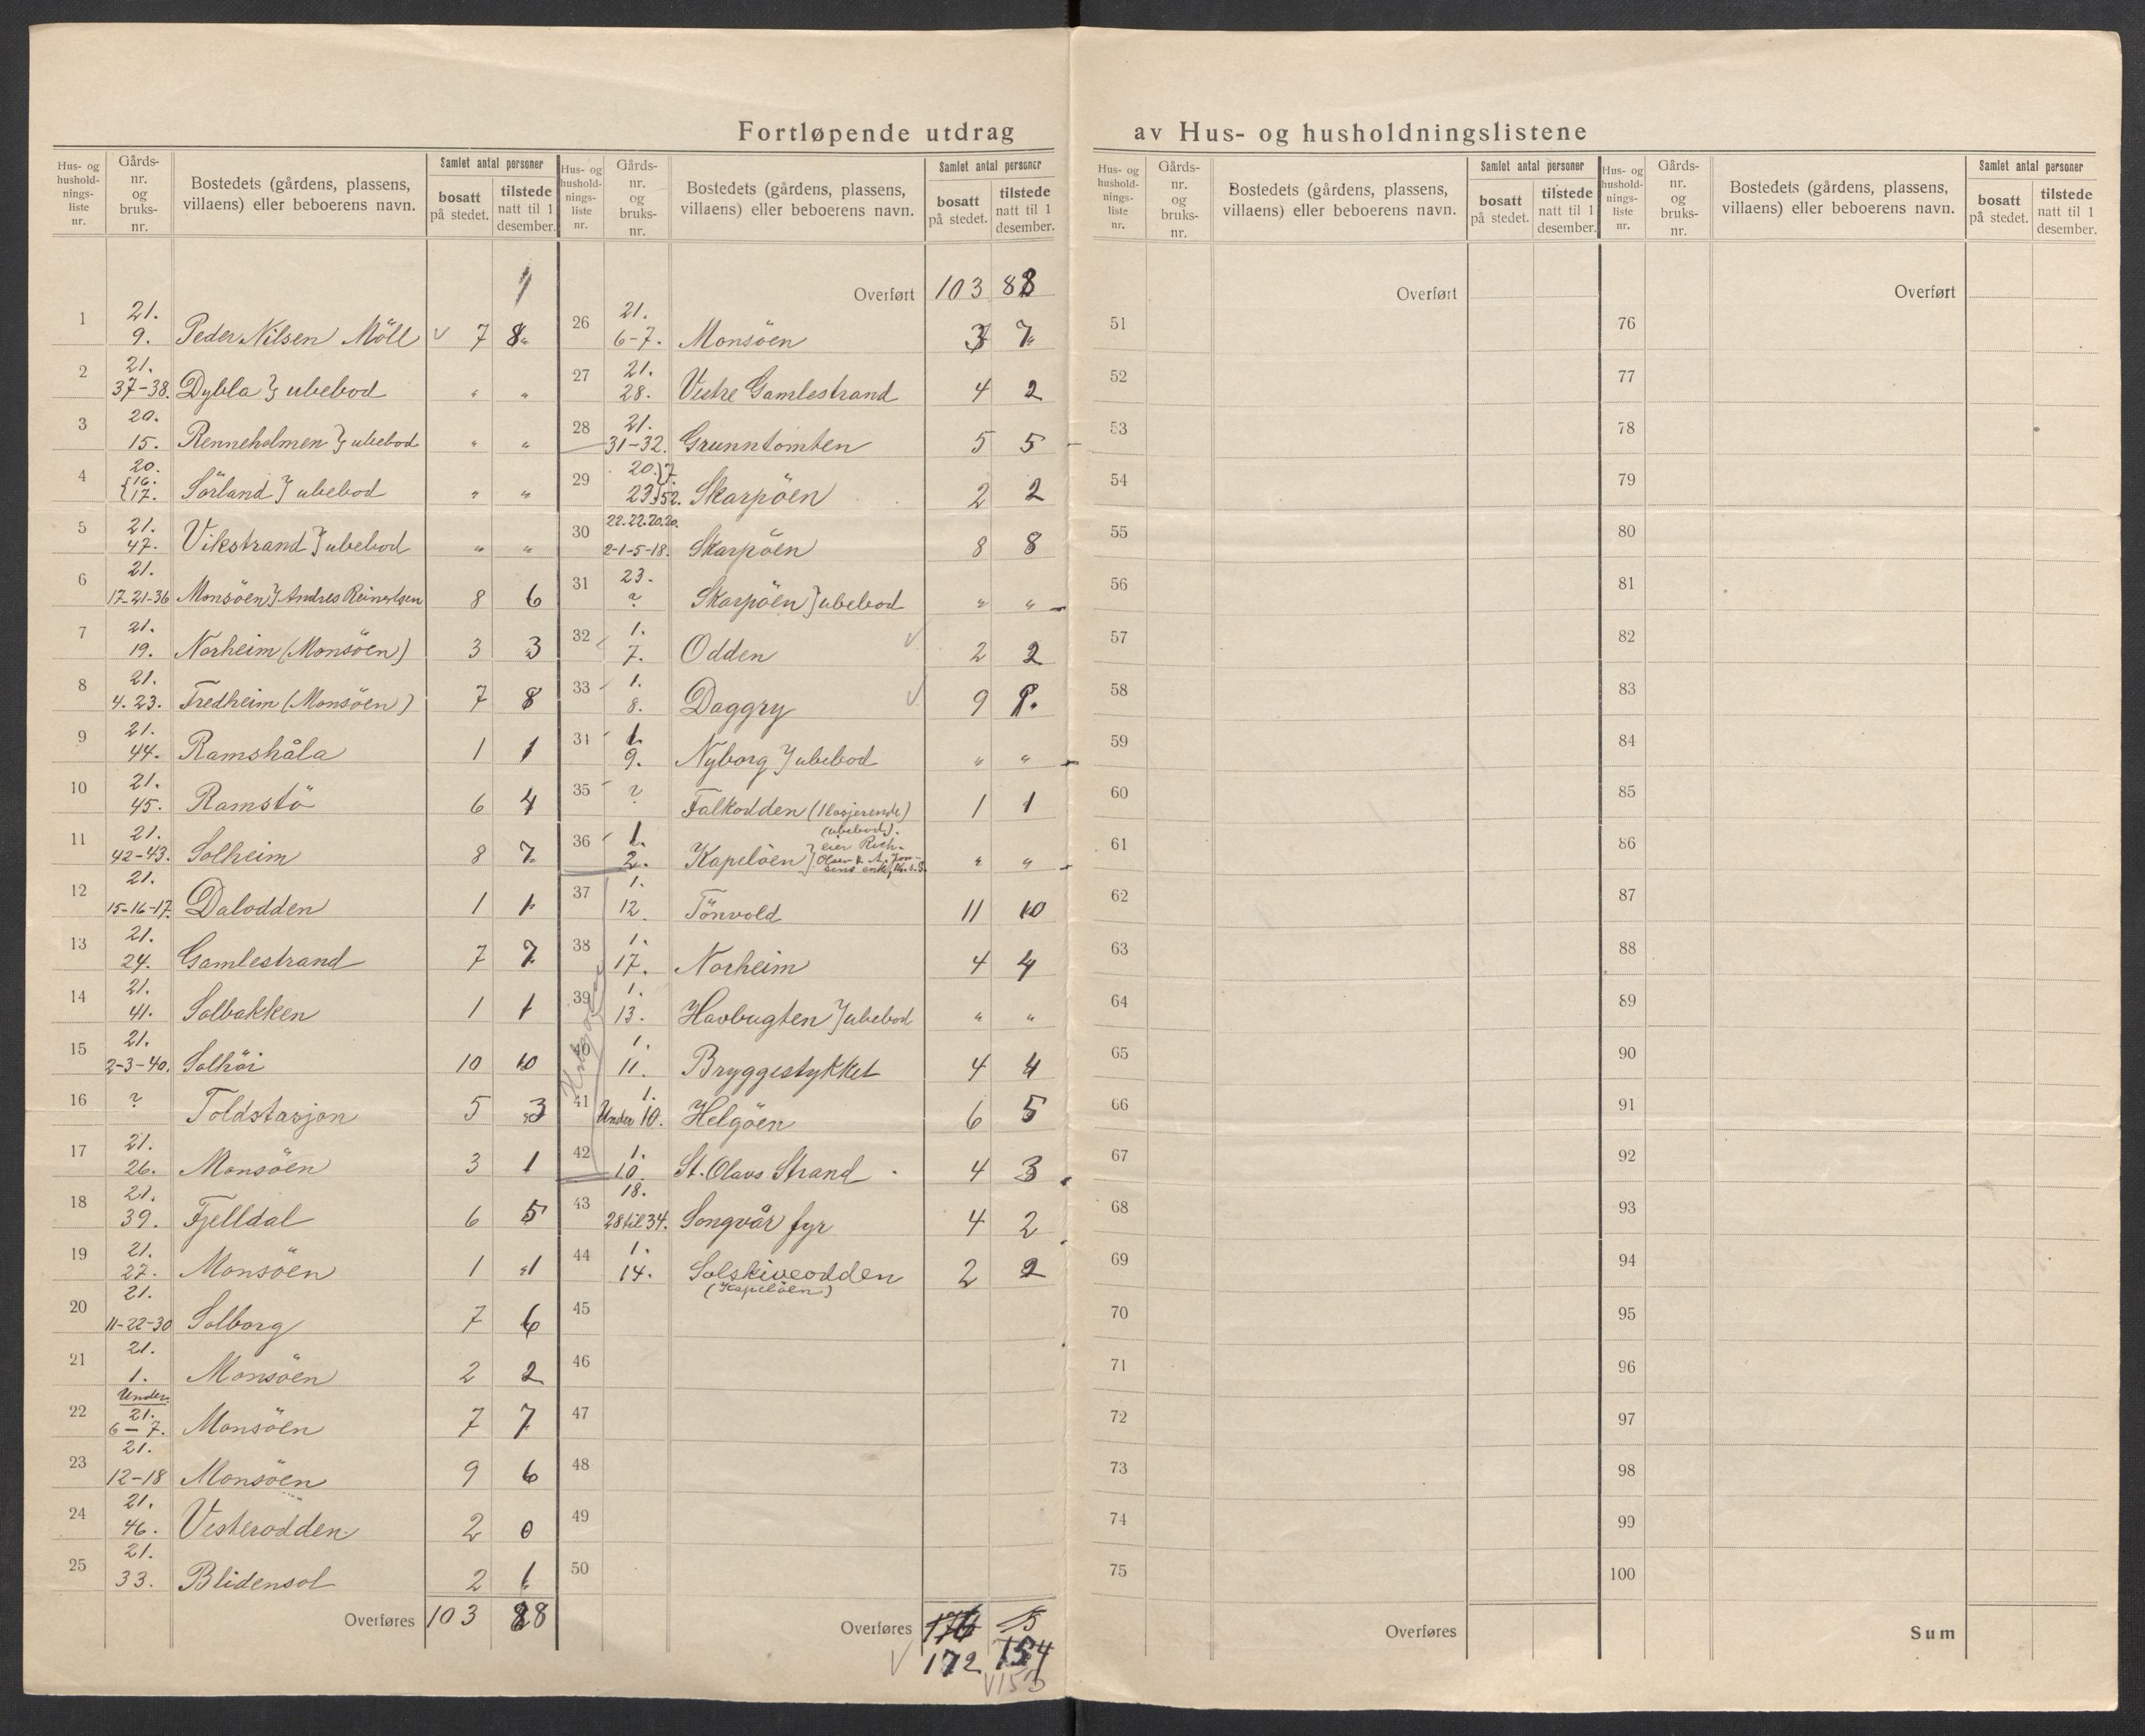 Fortløpende utdrag av Hus- og husholdningslistene
Hus- og hushold-nings-liste nr. Gårds-nr. og bruks-nr. Bostedets (gårdens, plassens, villaens) eller beboerens navn. Samlet antal personer bosatt på stedet. tilstede natt til 1 desember.
1 21. 9. Peder Nilsen Möll 7 8
2 21. 37-38. Dybla } ubebod " "
3 20. 15. Renneholmen } ubebod " "
4 20. {16. 17. Sörland } ubebod " "
5 21. 47. Vikstrand } ubebod " "
6 21. 17-21-36 Monsöen } Andres Reinertsen 8 6
7 21. 19. Norheim (Monsöen) 3 3
8 21. 4. 23. Fredheim (Monsöen) 7 8
9 21. 44. Ramshåla 1 1
10 21. 45. Ramstö 6 4
11 21. 42-43. Solheim 8 7
12 21. 15-16-17. Dalodden 1 1
13 21. 24. Gamlestrand 7 7
14 21. 41. Solbakken 1 1
15 21. 2-3-40. Solhöi 10 10
16 ? Toldstasjon 5 3
17 21. 26. Monsöen 3 1
18 21. 39. Fjelldal 6 5
19 21. 27. Monsöen 1 1
20 21. 11-22-30 Solborg 7 6
21 21. 1. Monsöen 2 2
22 Under 21. 6-7. Monsöen 7 7
23 21. 12-18 Monsöen 9 6
24 21. 46. Vesterodden 2 0
25 21. 33. Blidensol 2 1
Overføres 103 88
Hus- og hushold-nings-liste nr. Gårds-nr. og bruks-nr. Bostedets (gårdens, plassens, villaens) eller beboerens navn. Samlet antal personer bosatt på stedet. tilstede natt til 1 desember.
Overført 103 88
26 21. 6-7. Monsöen 3 7
27 21. 28. Vestre Gamlestrand 4 2
28 21. 31-32. Grunntomten 5 5
29 20.}7. 23}52. Skarpöen 2 2
30 22.22.20.20. 2-1-5-18. Skarpöen 8 8
31 23. ? Skarpöen } ubebod " "
32 1. 7. Odden 2 2
33 1. 8. Daggry 9 9.
34 1. 9. Nyborg } ubebod " "
35 ? Falkodden (losjerende) 1 1
36 1. 2. Kapelöen } (ubebod). eier Rich. " "
37 1. 12. Tönvold 11 10
38 1. 17. Norheim 4 4
39 1. 13. Havbugten } ubebod " "
40 1. 11. Bryggestykket 4 4
41 1. Under 10. Helgöen 6 5
42 1. 10. St. Olavs Strand 4 3
43 18. 28 til 34. Songvår fyr 4 2
44 1. 14. Solskiveodden (Kapelöen) 2 2
45
46
47
48
49
50
Overføres 176
172 154
153
Hus- og hushold-nings-liste nr. Gårds-nr. og bruks-nr. Bostedets (gårdens, plassens, villaens) eller beboerens navn. Samlet antal personer bosatt på stedet. tilstede natt til 1 desember.
Overført
51
52
53
54
55
56
57
58
59
60
61
62
63
64
65
66
67
68
69
70
71
72
73
74
75
Overføres
Hus- og hushold-nings-liste nr. Gårds-nr. og bruks-nr. Bostedets (gårdens, plassens, villaens) eller beboerens navn. Samlet antal personer bosatt på stedet. tilstede natt til 1 desember.
Overført
76
77
78
79
80
81
82
83
84
85
86
87
88
89
90
91
92
93
94
95
96
97
98
99
100
Sum